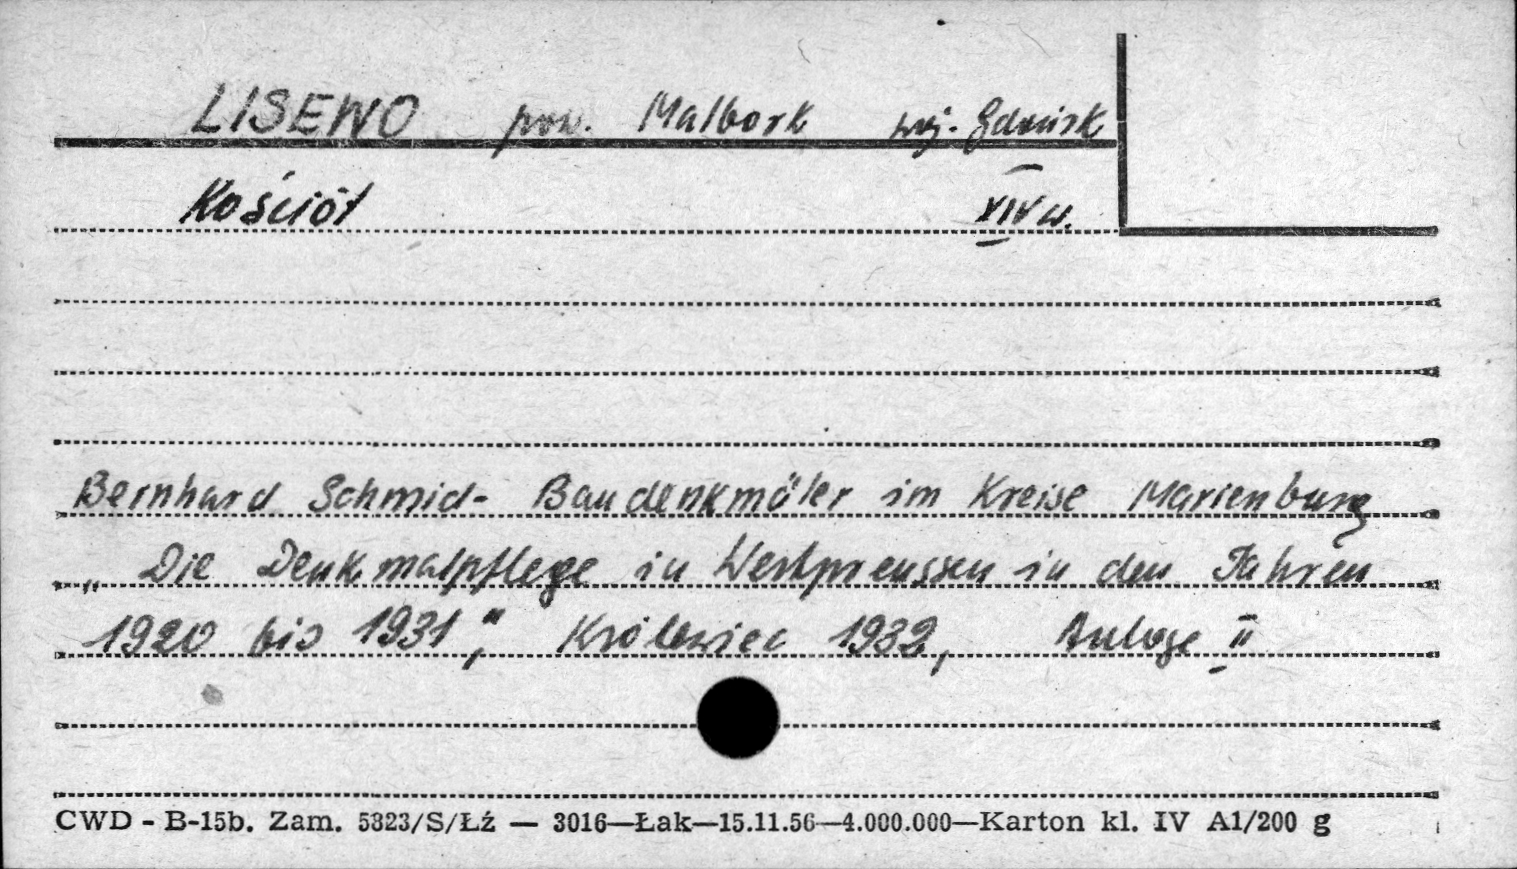 LISEWO pow. Malbork woj. Gdańsk
Kościół XIV w.
Bernhard Schmid - Baudenkmäler im Kreise Marienburg
„Die Denkmalpflege in Westpreussen in den Jahren
1920 bis 1931", Królewiec 1932, Anlage II
CWD - B-15b. Zam. 5323/S/Łź — 3016—Łak—15.11.56—4.000.000—Karton kl. IV A1/200 g